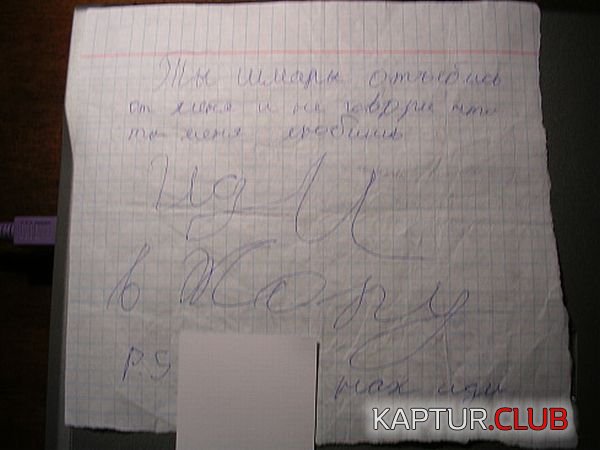 Ты шмара отъебись
от меня и не говори что
ты меня любишь
иди
в Жопу
P.S
нах иди
KAPTUR.CLUB